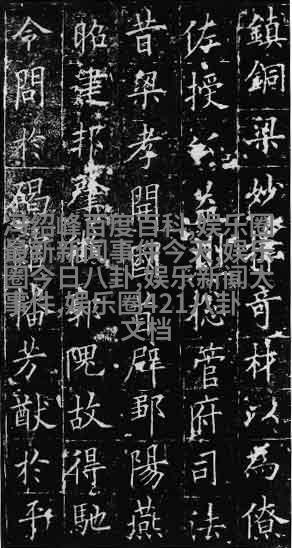 鎮銅梁妙奇材以為僚
佐授總管府司法
昔梁孝開國首辟鄒陽燕
昭建邦肇郭隗故得馳
令問於碣播芳猷於平
冯绍峰百度百科,娱乐圈
最新新闻事件今天,娱乐
圈今日八卦,娱乐新闻大
事件,娱乐圈421八卦
文档